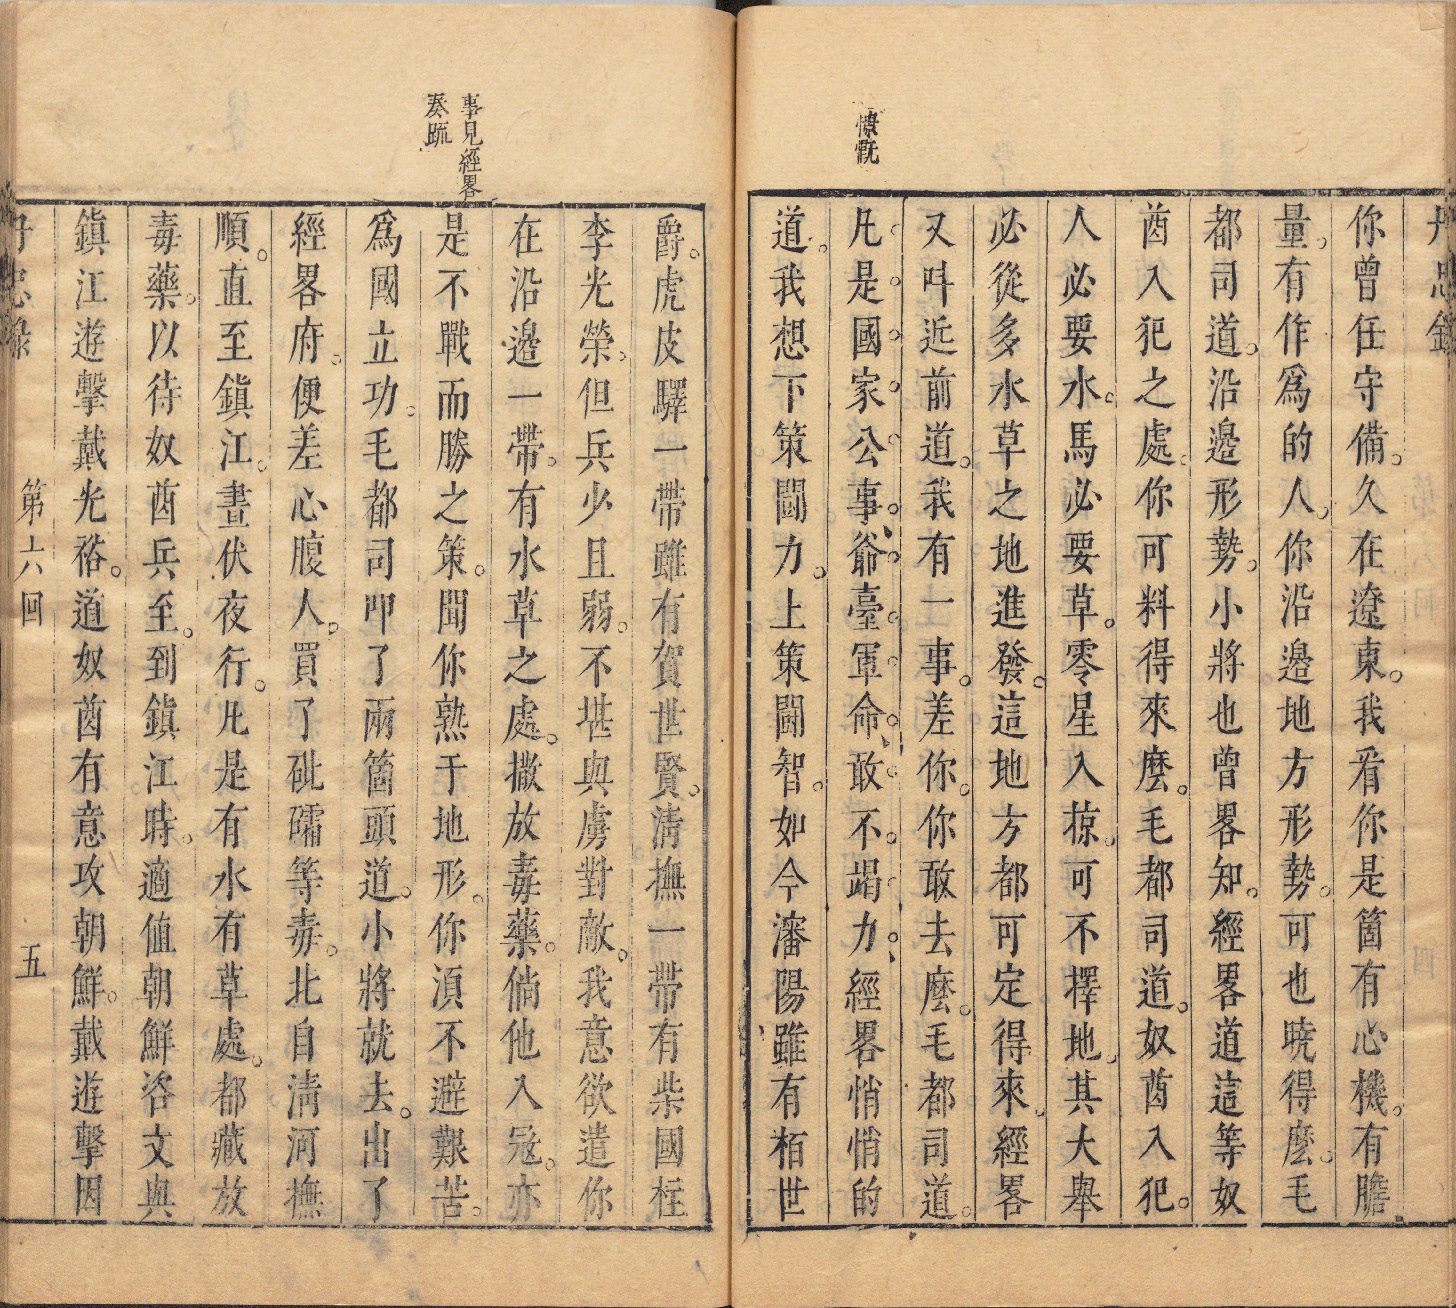 丹忠錄
你曾任守備。久在遼東。我看你是箇有心機。有膽
量。有作爲的人。你沿邉地方形勢。可也曉得麽。毛
都司道。沿邊形勢。小將也曾畧知。經畧道這等奴
酋入犯之處。你可料得來麽。毛都司道。奴酋入犯。
人必要水。馬必要草。零星入掠。可不擇地。其大舉
必從多水草之地進發。這地方都可定得來。經畧
又呌近前道。我有一事。差你。你敢去麽。毛都司道。
慷慨
凡是國家公事、爺臺軍命、敢不竭力、經畧悄悄的
道。我想下策鬪力。上策鬪智。如今瀋陽雖有栢世
爵。虎皮驛一帶雖有賀世賢。淸撫一帶有柴國柱
李光榮。但兵少且弱。不堪與虜對敵。我意欲遣你
在沿邉一帶。有水草之處。撒放毒藥。倘他入冦。亦
事見經畧
奏䟽
是不戰而勝之策。聞你熟于地形。你湏不避艱苦。
爲國立功。毛都司叩了兩箇頭道。小將就去。出了
經畧府。便差心腹人。買了砒礵等毒。北自淸河撫
順。直至鎭江。晝伏夜行。凡是有水有草處。都藏放
毒藥。以待奴酋兵至。到鎭江時。適值朝鮮咨文與
鎭江遊擊戴光裕。道奴酋有意攻朝鮮。戴遊擊因
丹忠錄
第六回
五